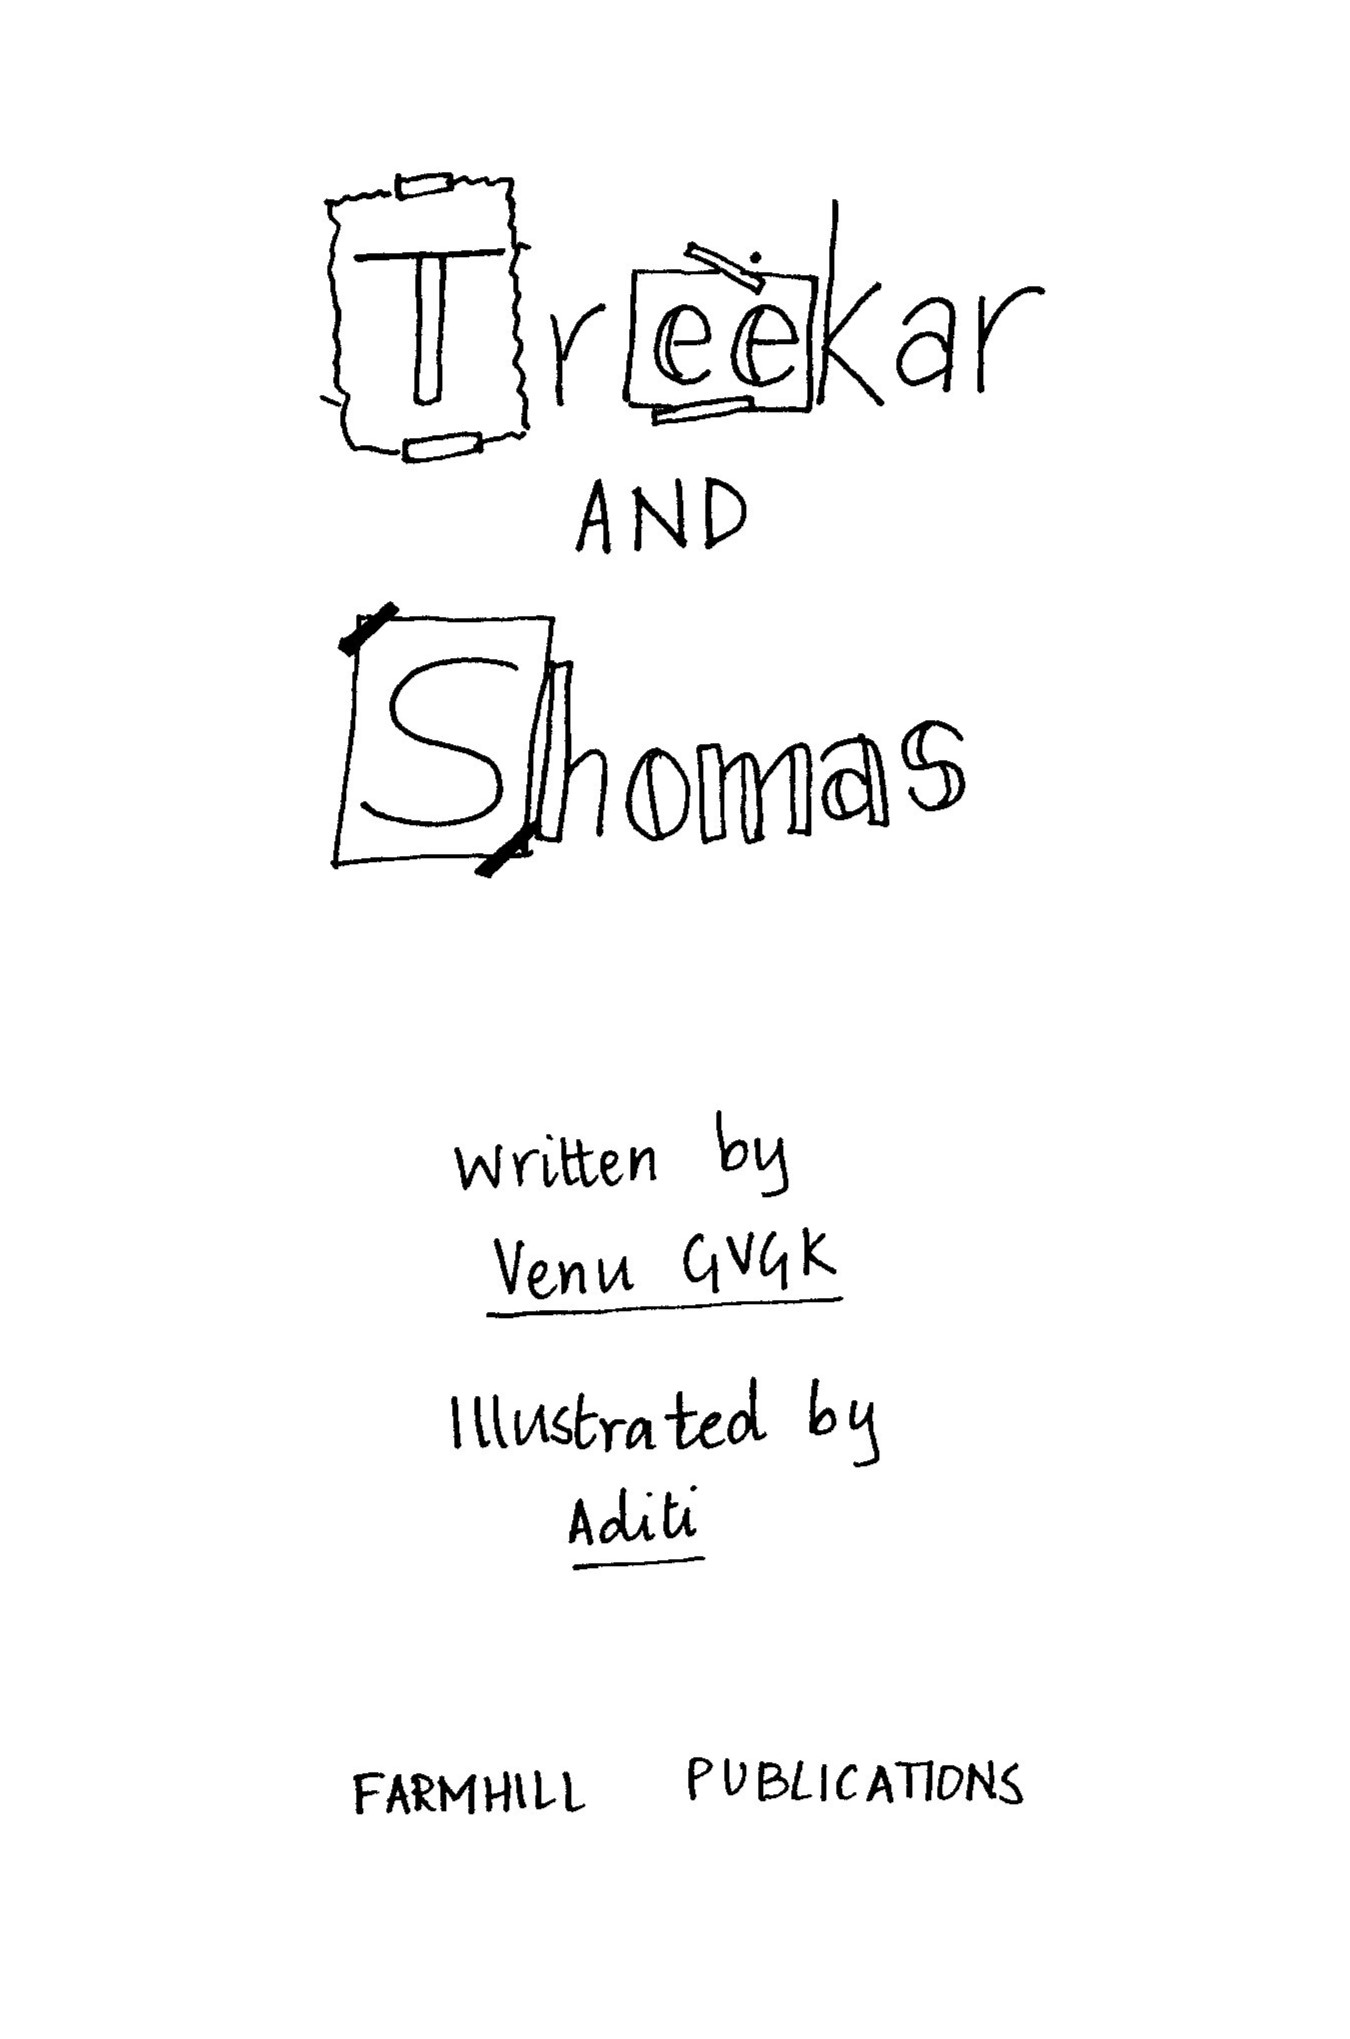 Treekar
AND
Shomas
Written by
Venu GVGK
Illustrated by
Aditi
FARMHILL PUBLICATIONS